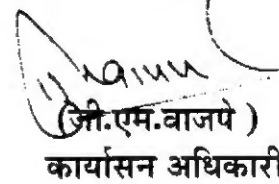 (जी.एम.वाजपे )
कार्यासन अधिकारी